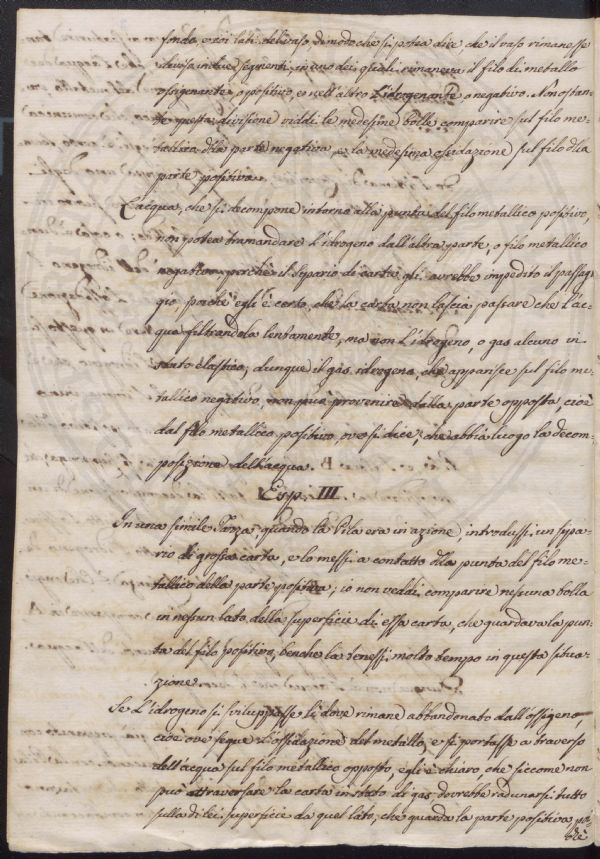 fondo, e coi lati del vaso di modo che si potea dire che il vaso rimanesse
diviso in due segmenti, in uno dei quali rimaneva il filo di metallo
ossigenante o positivo, e nell'altro l'idrogenante o negativo. Nonostan-
te questa divisione viddi le medesime bolle comparire sul filo me-
tallico della parte negativa, e la medesima ossidazione sul filo dlla
parte positiva.
L'acqua, che si decompone intorno alla punta del filo metallico positivo,
non potea tramandare l'idrogeno dall'altra parte, o filo metallico
negativo, perchè il sipario di carta gli avrebbe impedito il passag-
gio, poichè egli è certo, che la carta non lascia passare che l'ac-
qua filtrandola lentamente, ma non l'idrogeno, o gas alcuno in
stato elastico; dunque il gas idrogeno, che apparisce sul filo me-
tallico negativo, non può provenire dalla parte opposta, cioè
dal filo metallico positivo, ove si dice, che abbia luogo la decom-
posizione dell'acqua.
Esp. III.
In una simile Tazza, quando la Pila era in azione, introdussi un sipa-
rio di grossa carta, e lo messi a contatto dlla punta del filo me-
tallico della parte positiva; io non veddi comparire nessuna bolla
in nessun lato della superficie di essa carta, che guardava la pun-
ta del filo positivo, benche la tenessi molto tempo in questa situa-
zione.
Se l'idrogeno si sviluppasse lì dove rimane abbandonato dall'ossigeno,
cioè ove segue l'ossidazione del metallo, e si portasse a traverso
dell'acqua sul filo metallico opposto, egli è chiaro, che siccome non
può attraversare la carta in stato di gas, dovrebbe radunarsi tutto
sulla di lei superficie da quel lato, che guarda la parte positiva, poi-
chè